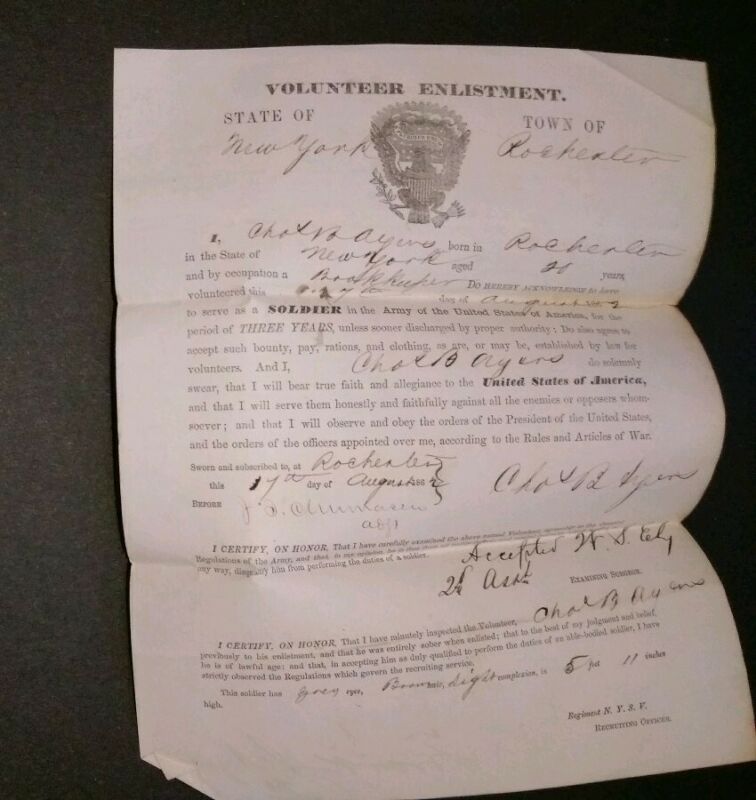 VOLUNTEER ENLISTMENT.
STATE OF TOWN OF
New York Rochester
I, Chas B Ayers born in Rochester
in the State of New York aged 20 years,
and by occupation a Bookkeeper Do HEREBY ACKNOWLEDGE to have
volunteered this 17th day of August 1862
to serve as a SOLDIER in the Army of the United States of America, for the
period of THREE YEARS, unless sooner discharged by proper authority: Do also agree to
accept such bounty, pay, rations, and clothing, as are, or may be, established by law for
volunteers. And I, Chas B Ayers do solemnly
swear, that I will bear true faith and allegiance to the United States of America,
and that I will serve them honestly and faithfully against all the enemies or opposers whom-
soever; and that I will observe and obey the orders of the President of the United States,
and the orders of the officers appointed over me, according to the Rules and Articles of War.
Sworn and subscribed to, at Rochester
this 17th day of August 1862
Chas B Ayers
BEFORE
I CERTIFY, ON HONOR, That I have carefully examined the above named Volunteer, agreeably to the General
Regulations of the Army, and that, in my opinion, he is free from all
any way, disqualify him from performing the duties of a soldier.
Accepted W. S. Ely
2d Asst
EXAMINING SURGEON.
I CERTIFY, ON HONOR, That I have minutely inspected the Volunteer, Chas B Ayers
previously to his enlistment, and that he was entirely sober when enlisted; that to the best of my judgment and belief,
he is of lawful age; and that, in accepting him as duly qualified to perform the duties of an able-bodied soldier, I have
strictly observed the Regulations which govern the recruiting service.
This soldier has Grey eyes, Brown hair, light complexion, is 5 feet 11 inches
high.
Regiment N. Y. S. V.
RECRUITING OFFICER.